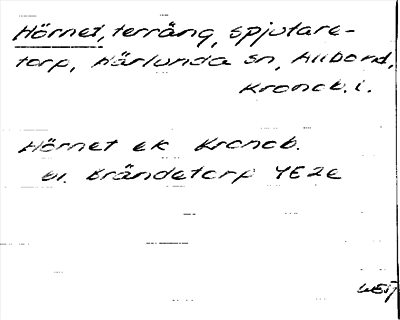 Hörnet, terräng, spjutare-
torp, Härlunda sn, Allbond,
Kronob. l.
Hörnet ek Kronob.
bl. Brändetorp 4E2e